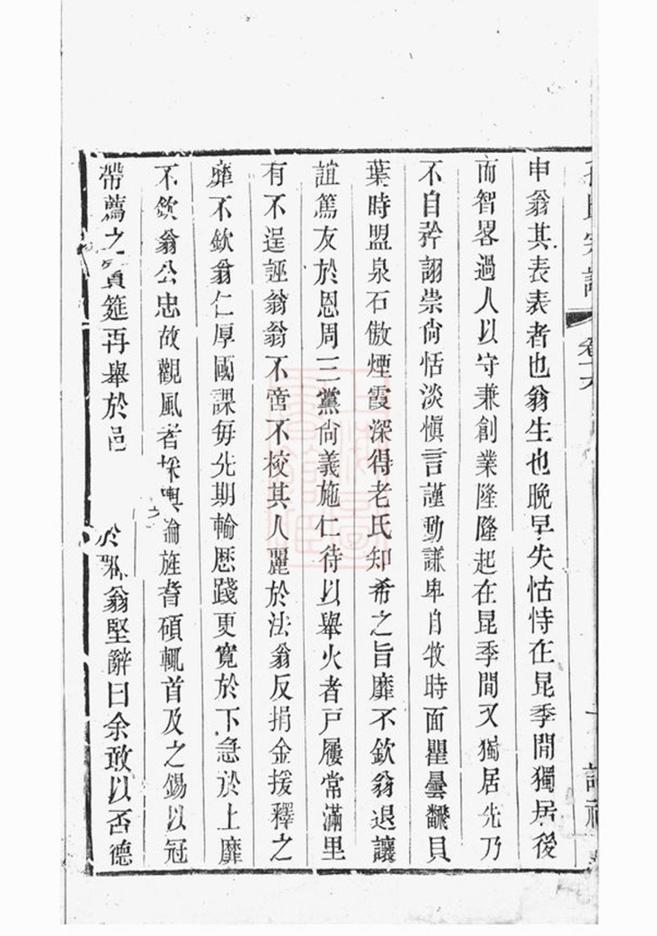 氏宗譜 卷十六
申翁其表表者也翁生也晚早失怙恃在昆季閒獨居後
而智畧過人以守兼創業隆隆起在昆季間又獨居先乃
不自矜詡崇尙恬淡愼言謹動謙卑自牧時面瞿曇飜貝
葉時盟泉石傲煙霞深得老氏知希之旨靡不欽翁退讓
誼篤友於恩周三黨尙義施仁待以舉火者戸屨常滿里
有不逞誣翁翁不啻不校其人麗於法翁反捐金援釋之
靡不欽翁仁厚國課每先期輸歷踐更寛於下急於上靡
不欽翁公忠故觀風者採輿論旌耆碩輒首及之錫以冠
帶薦之賓筵再舉於邑 於郡翁堅辭曰余敢以否德